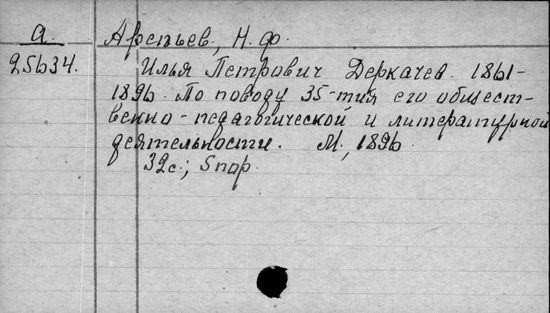 а. Арепьев, Н. Ф.
25634. Илья Петрович Деркачев. 1861-
1896. По поводу 35-тия его общест-
венно-педагогической и литературной
деятельности. М., 1896.
32с.; 5 пор.